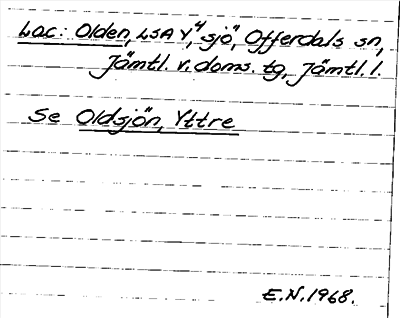 Lac: Olden, LSA Y⁴, "sjö", Offerdals sn,
Jämtl. v. doms. tg, Jämtl. l.
Se Oldsjön, Yttre
E.N. 1968.